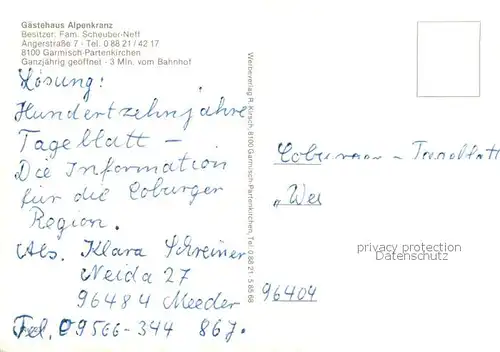 Gästehaus Alpenkranz
Besitzer: Fam. Scheuber-Neff
Angerstraße 7 · Tel. 0 88 21 / 42 17
8100 Garmisch-Partenkirchen
Ganzjährig geöffnet · 3 Min. vom Bahnhof
Lösung:
Hundertzehn Jahre
Tageblatt –
Die Information
für die Coburger
Region.
Abs. Klara Schreiner
Neida 27
96484 Meeder
Tel. 09566-344 867.
Werbeverlag R. Kirsch, 8100 Garmisch-Partenkirchen, Tel. 0 88 21
"Wei
96404
privacy protection
Datenschutz